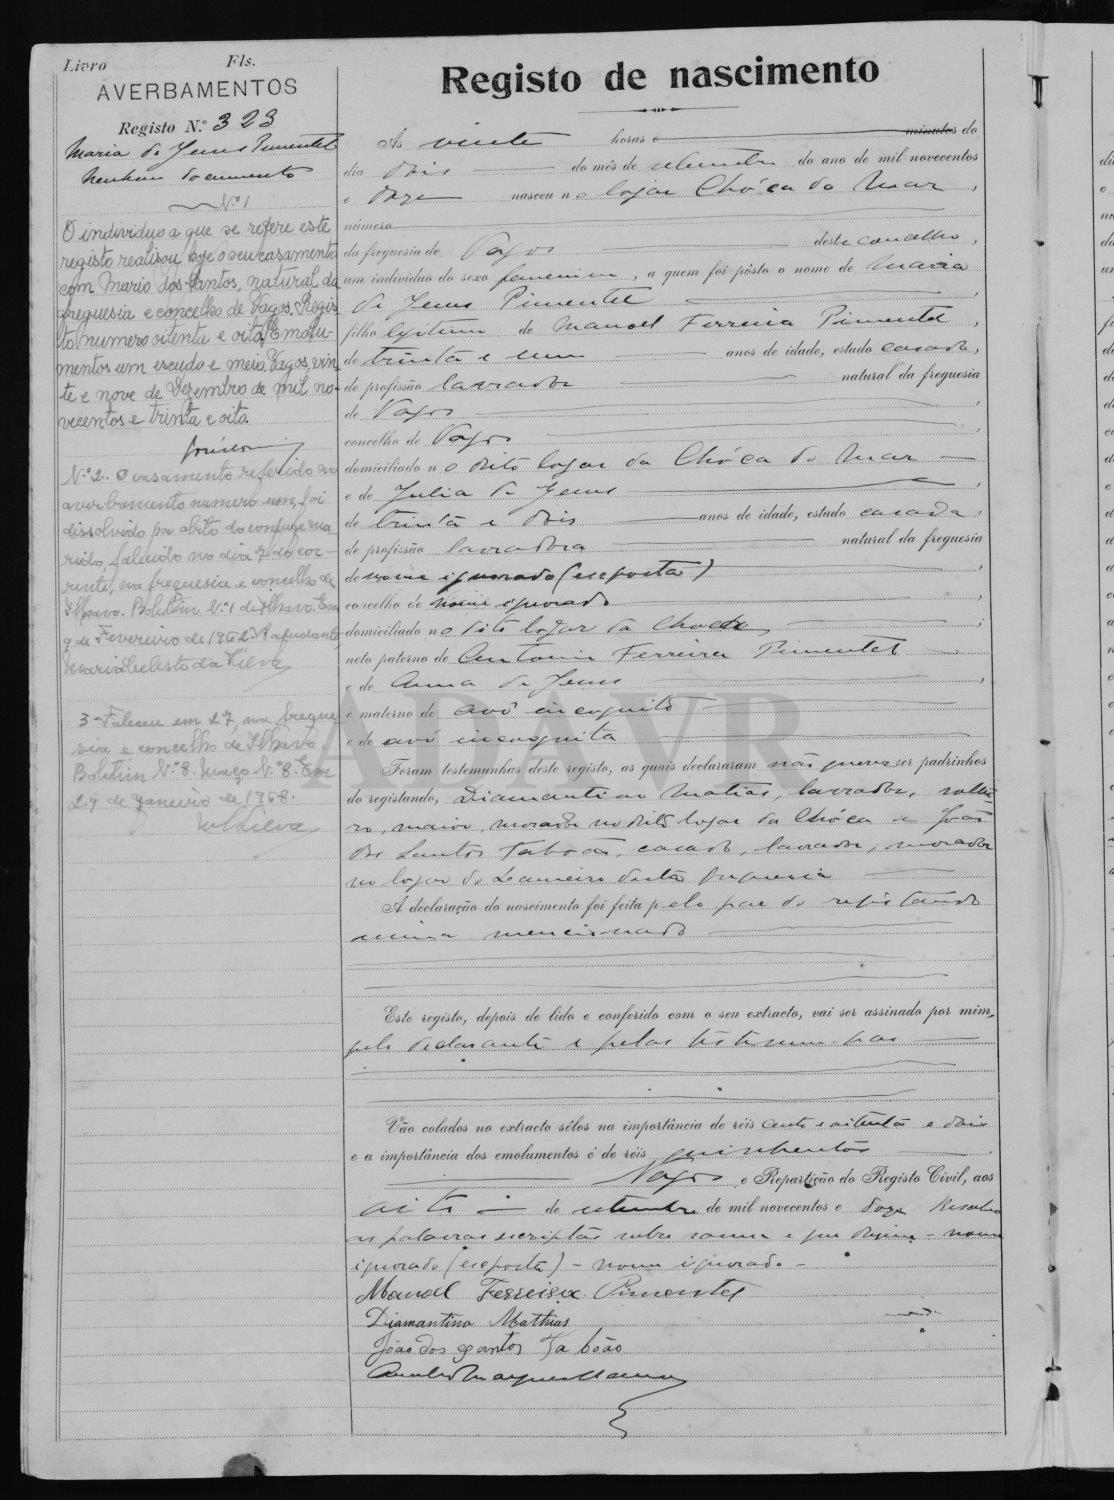 Livro Fls.
AVERBAMENTOS
Registo N.º 323
Maria de Jesus Pimentel
Nenhum documento
Nº 1
O individuo a que se refere este
registo realisou hoje o seu casamento
com Mario dos Santos, natural da
freguesia e concelho de Vagos. Regis-
to numero oitenta e oito. Emolu-
mentos um escudo e meio. Vagos, vin-
te e nove de Dezembro de mil no-
vecentos e trinta e oito.
N.º 2. O casamento referido no
averbamento numero um, foi
dissolvido por obito do conjuge ma-
rido, falecido no dia 7 do cor-
rente, na freguesia e concelho de
Ilhavo. Boletim N.º 1 de Ilhavo. Em
9 de Fevereiro de 1962. A ajudante,
Maria Celeste da Silva
3- Faleceu em 27, na fregue-
sia e concelho de Ilhavo.
Boletim N.º 8. Maço N.º 8. Em
29 de Janeiro de 1968.
MCSilva
Registo de nascimento
Ás vinte horas e minutos do
dia dois do mês de setembro do ano de mil novecentos
e doze nasceu no logar Chóca do Mar,
número
da freguesia de Vagos deste concelho,
um individuo do sexo femenino, a quem foi pôsto o nome de Maria
de Jesus Pimentel,
filho legitimo de Manoel Ferreira Pimentel,
de trinta e um anos de idade, estado casado,
de profissão lavrador natural da freguesia
de Vagos,
concelho de Vagos,
domiciliado no dito logar da Chóca do Mar
e de Julia de Jesus,
de trinta e dois anos de idade, estado casada,
de profissão lavradora natural da freguesia
de nome ignorado (exposta),
concelho de nome ignorado,
domiciliado no dito logar da Choca,;
neto paterno de Antonio Ferreira Pimentel
e de Anna de Jesus,
e materno de avô incognito
e de avó incognita.
Foram testemunhas deste registo, as quais declararam não querer ser padrinhos
do registando, Diamantino Matias, lavrador, soltei-
ro, maior, morador no dito logar da Chóca e João
dos Santos Taboão, casado, lavrador, morador
no logar de Lameiro desta freguesia
A declaração do nascimento foi feita pelo pae do registando
acima mencionado
Este registo, depois de lido e conferido com o seu extracto, vai ser assinado por mim,
pelo declarante e pelas testemunhas
Vão colados no extracto sêlos na importância de réis cento e oitenta e dois
e a importância dos emolumentos é de réis quinhentos.
Vagos e Repartição do Registo Civil, aos
oito de setembro de mil novecentos e doze. Resalvo
as palavras escriptas sobre rasura e que dizem - nome
ignorado (exposta) - nome ignorado -
Manoel Ferreira Pimentel
Diamantino Mathias
João dos Santos Taboão
ADAVR